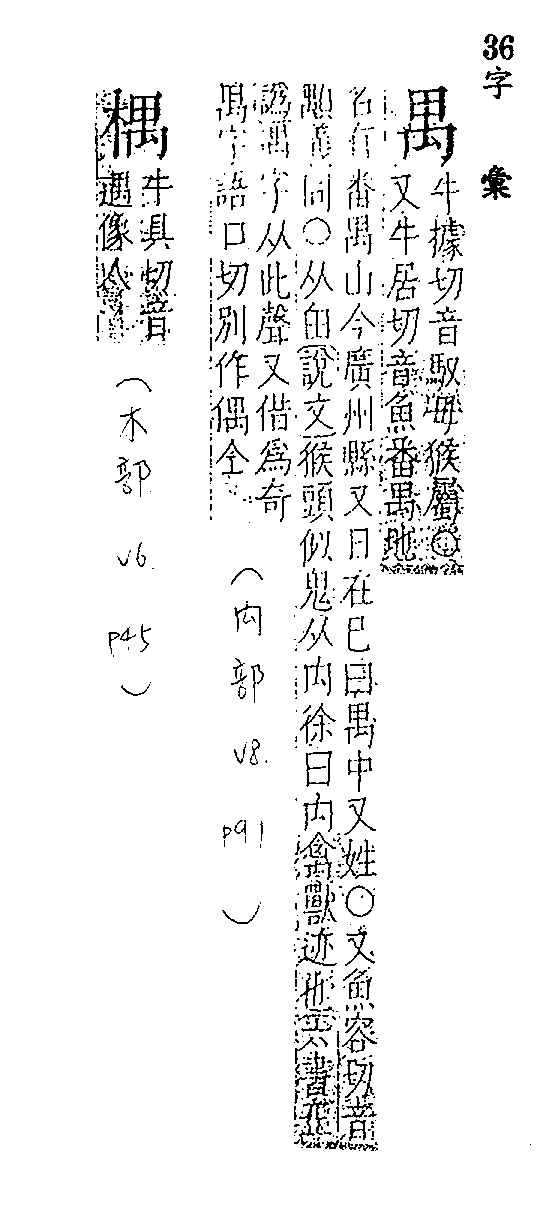 36字彙
禺
牛據切音馭毋猴屬○
又牛居切音魚番禺地
名有番禺山今廣州縣又日在巳曰禺中又姓○又魚容切音
顒義同○从甶說文猴頭似鬼从禸徐曰禸禽獸迹也
字从此聲又借爲奇
禺字語口切別作偶仝
(禸部 v8. p91)
楀
牛具切音
遇像
(木部 v6. p45)